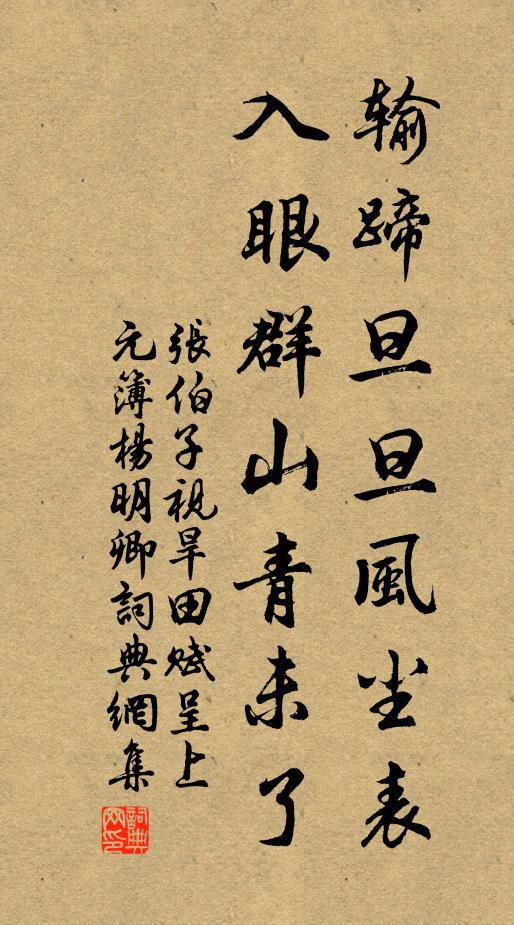 輸蹄旦旦風尘表
入眼群山青未了
張伯子視旱田賦呈上
元簿楊明卿詞典網集
詞典网印